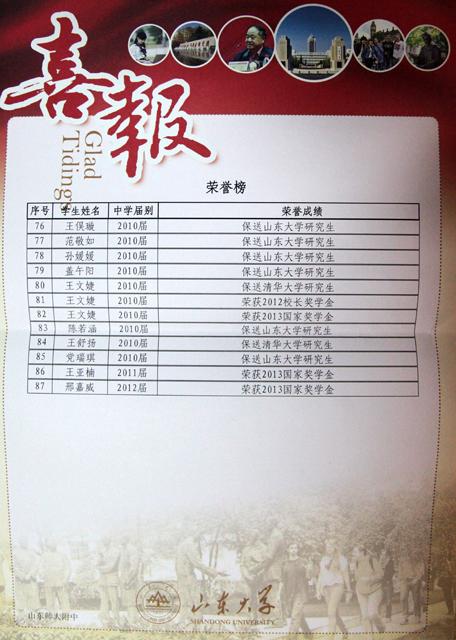 喜報
Glad
Tidings
荣誉榜
序号 学生姓名 中学届别 荣誉成绩
76 王俣璇 2010届 保送山东大学研究生
77 范敬如 2010届 保送山东大学研究生
78 孙媛媛 2010届 保送山东大学研究生
79 盖午阳 2010届 保送山东大学研究生
80 王文婕 2010届 保送清华大学研究生
81 王文婕 2010届 荣获2012校长奖学金
82 王文婕 2010届 荣获2013国家奖学金
83 陈若涵 2010届 保送山东大学研究生
84 王舒扬 2010届 保送清华大学研究生
85 党瑞琪 2010届 保送山东大学研究生
86 王亚楠 2011届 荣获2013国家奖学金
87 邢嘉威 2012届 荣获2013国家奖学金
山东大学
SHANDONG UNIVERSITY
山东师大附中